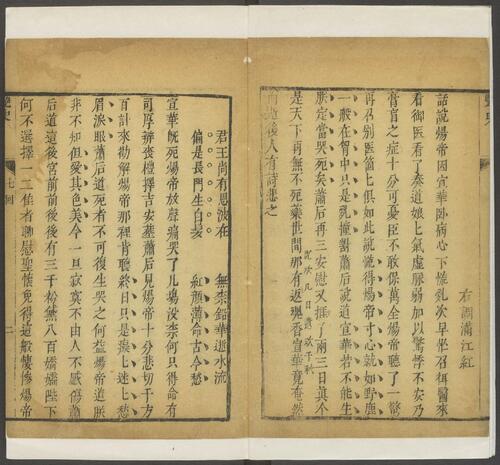 右調滿江紅
話說煬帝因宣華臥病心下慌亂次早坐召御醫來
看御醫看了奏道娘娘上氣虛脈弱加以驚悸不安乃
膏肓之症十分可憂臣不敢保萬全煬帝聽了一發
再召別醫箇七俱如此說諕得煬帝寸心就如野鹿
一般在胷中只是亂撞對蕭后說道宣華若不能生
朕定當哭死矣蕭后再三安慰又捱了兩三日真个
是天下再無不死藥世間那有返魂香宣華竟奄然
而逝後人有詩悲之
君王尚有恩波在 無柰鉛華逝水流
偏是長門生白髮 紅顏薄命古今愁
宣華旣死煬帝放聲痛哭了几場沒柰何只得命有
司厚斂喪禮擇吉安塟蕭后見煬帝十分悲切千方
百計來勸解煬帝那裡肯聽終日只是癡七迷七愁
眉淚眼蕭后道死者不可復生哭之何益煬帝道朕
非不知但愛其色美今一旦寂寞不由人不感傷蕭
后道這後宮前前後後有三千粉黛八百嬌嬌陛下
何不選擇一二佳者聊慰聖懷免得這般悽慘煬帝
艷史
七囘
二